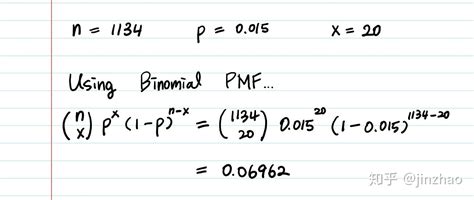 n = 1134 p = 0.015 x = 20
Using Binomial PMF...
(n x) p^x (1-p)^{n-x} = (1134 20) 0.015^{20} (1-0.015)^{1134-20}
= 0.06962
知乎 @jinzhao